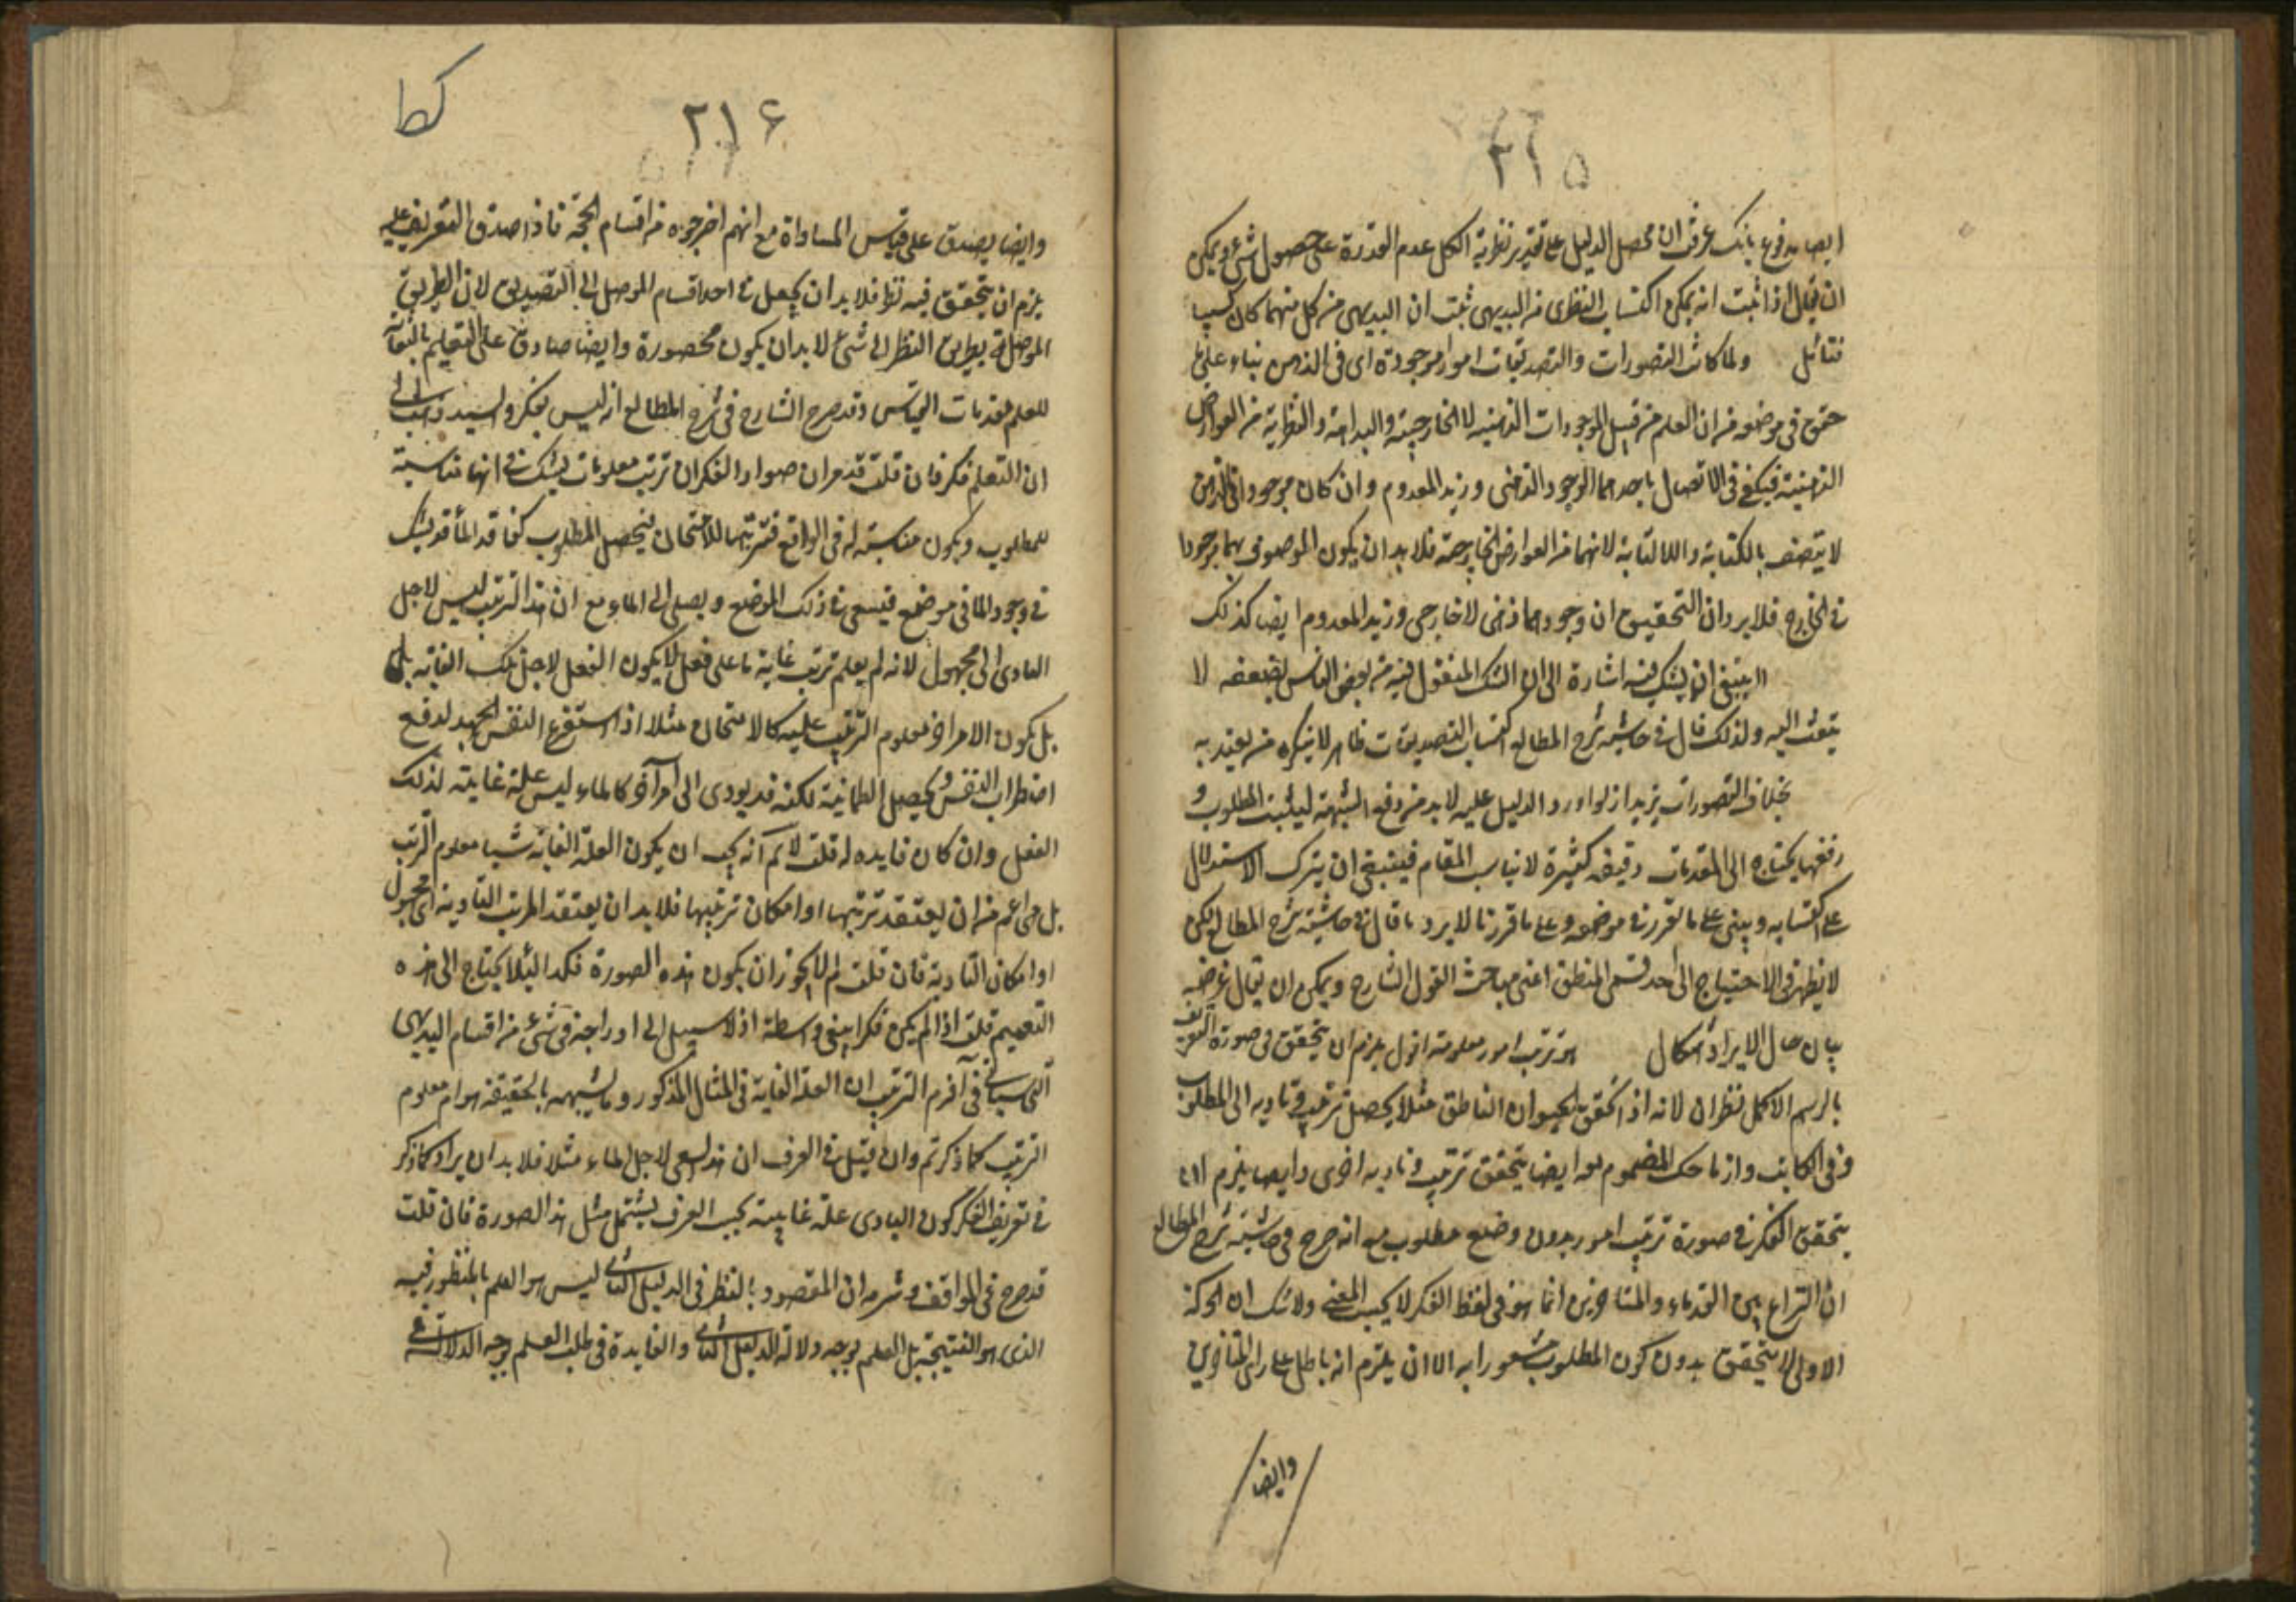 ٢١٥
ايضا مدفوع بانك عرفت ان محصل الدليل على تقدير نظرية الكل عدم القدرة على حصول شئ ويمكن
ان يقال اذا ثبت انه يمكن اكتساب النظرى من البديهى ثبت ان البديهى من كل منهما كان كسبيا
فتأمل ولما كانت التصورات والتصديقات امورا موجودة اى فى الذهن بناء على
حقق فى موضعه من ان العلم من قبيل الموجودات الذهنية لا الخارجية والبداهة والنظرية من العوارض
الذهنية فيكفى فى الاتصال باحدهما الوجود الذهنى وزيد المعدوم وان كان موجودا فى الذهن
لا يتصف بالكتابة واللاكتابة لانهما من العوارض الخارجية فلا بد ان يكون الموصوف بهما موجودا
فى الخارج فلا يرد ان التحقيق ان وجودهما ذهنى لا خارجى وزيد المعدوم ايضا كذلك
ينبغى ان يشك فيه اشارة الى ان الشك المنقول فيه من بعض الناس لضعفه لا
يلتفت اليه ولذلك قال فى حاشية شرح المطالع اكتساب التصديقات ظاهر لا ينكره من يعتد به
بخلاف التصورات يريد انه لو اورد الدليل عليه لا بد من دفع الشبهة ليثبت المطلوب و
دفعها يحتاج الى المقدمات دقيقة كثيرة لا يناسب المقام فينبغى ان يترك الاستدلال
على اكتسابه ويبنى على ما تقرر فى موضعه وعلى ما قررنا لا يرد ما قال فى حاشية شرح المطالع لكن
لا يظهر فى الاحتياج الى احد قسمى المنطق اعنى مباحث القول الشارح ويمكن ان يقال غرضه
بيان حال الايراد اشكال هو ترتيب امور معلومة اقول يلزم ان يتحقق فى صورة التعريف
بالرسم الاكمل نظران لانه اذا تحقق الحيوان الناطق مثلا يحصل ترتيب وتاديه الى المطلوب
وفى الكاتب واز ضاحك المضموم معه ايضا يتحقق ترتيب وتاديه اخرى وايضا يلزم ان
يتحقق الفكر فى صورة ترتيب امور بدون وضع مطلوب مع انه صرح فى حاشية شرح المطالع
ان النزاع بين القدماء والمتاخرين انما هو فى لفظ الفكر لا بحسب المعنى ولا شك ان الحركة
الاولى لا يتحقق بدون كون المطلوب مشعورا به الا ان يلتزم انه باطل على راى المتاخرين
وايضا
كط
٢١۶
وايضا يصدق على قياس المساواة مع انهم اخرجوه من اقسام الحجة فاذا صدق التعريف عليه
يلزم ان يتحقق فيه نظر فلا بد ان يجعل من احد اقسام الموصل الى التصديق لان الطريق
الموصل بطريق النظر الى شئ لا بد ان يكون محصورة وايضا صادق على التعليم بالقاء
المعلم مقدمات القياس وقد صرح الشارح فى شرح المطالع انه ليس بفكر والسيد ذهب الى
ان التعلم فكر فان قلت قد مر ان صواد الفكر ان ترتيب معلومات يشك فى انها مناسبة
للمطلوب ويكون مناسبة له فى الواقع فترتيبها للامتحان ليحصل المطلوب كفاقد الماء قد يشك
فى وجود الماء فى موضع فيسعى فى ذلك الموضع ويصل الى الماء مع ان هذا الترتيب ليس لاجل
التادى الى مجهول لانه لم يعلم ترتب غاية ما على فعل لا يكون الفعل لاجل تلك الغاية بل
بل يكون الامر اخر معلوم الترتب عليه كالامتحان مثلا اذ استفرغ النفس الجهد لدفع
اضطراب النفس وتحصيل الطمانية لكنه قد يودى الى امر آخر كالماء ليس علة غايية لذلك
الفعل وان كان فايده له قلت لا نم انه يجب ان يكون العلة الغاية شيئا معلوم الترتب
بل هى اعم من ان يعتقد ترتبها او امكان ترتبها فلا بد ان يعتقد المرتب التادية الى مجهول
او امكان التادية فان قلت لم لا يجوز ان يكون هذه الصورة فكرا لئلا يحتاج الى هذه
التعميم قلت اذا لم يكن فكرا يبقى واسطة اذ لا سبيل الى ادراجه فى شئ من اقسام البديهى
التى سياتى فى آخر الترتيب ان العلة الغاية فى المثال المذكور وما يشبهه بالحقيقة هو امر معلوم
الترتب كما ذكرتم وان قيل فى العرف ان هذا سعى لاجل الماء مثلا فلا بد ان يراد كما ذكر
فى تعريف الفكر كون التادى علة غايية بحسب العرف ليشتمل مثل هذا الصورة فان قلت
قد صرح فى المواقف وشرحه ان المقصود بالنظر فى الدليل الثانى ليس هو العلم بالمنظور فيه
الذى هو النتيجة بل العلم بوجه دلالة الدليل الثانى والفايدة فى طلب العلم بوجه الدلالة